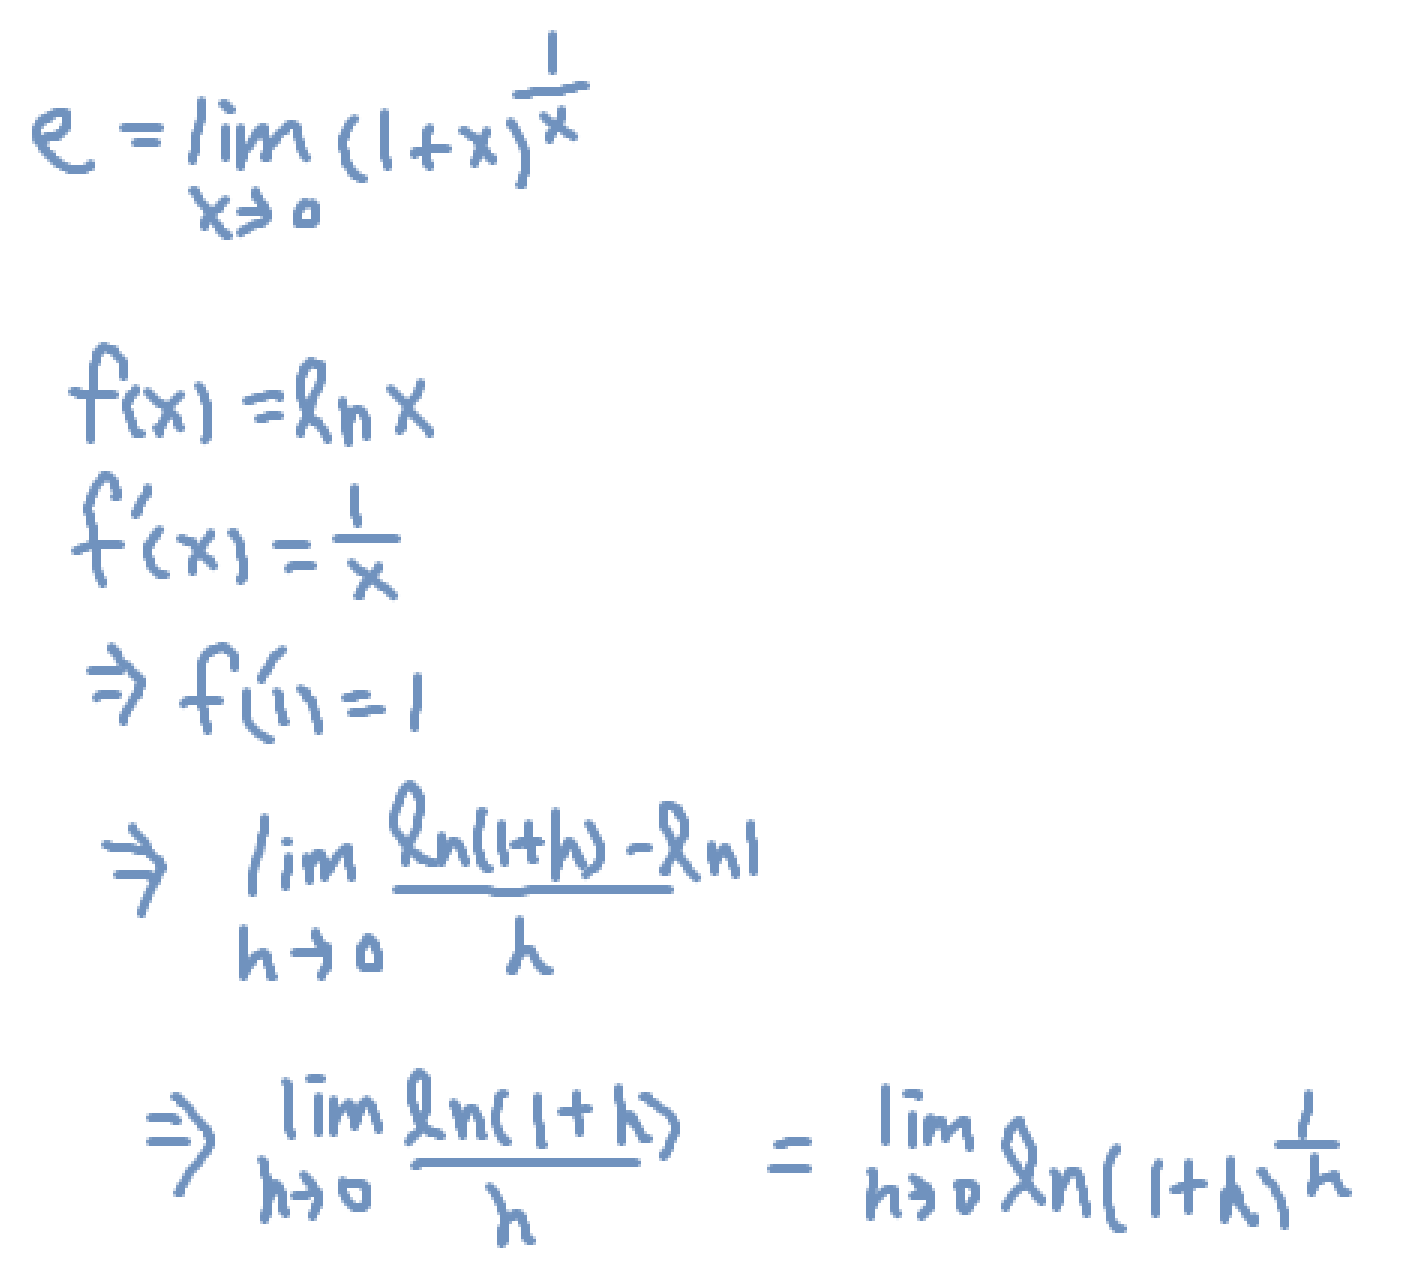 e = lim_{x→0} (1+x)^{1/x}
f(x) = ln x
f'(x) = 1/x
⇒ f'(1) = 1
⇒ lim_{h→0} (ln(1+h) - ln1)/h
⇒ lim_{h→0} ln(1+h)/h = lim_{h→0} ln(1+h)^{1/h}